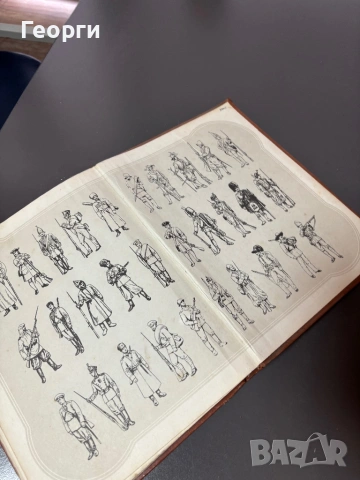 Георги
BAZAR